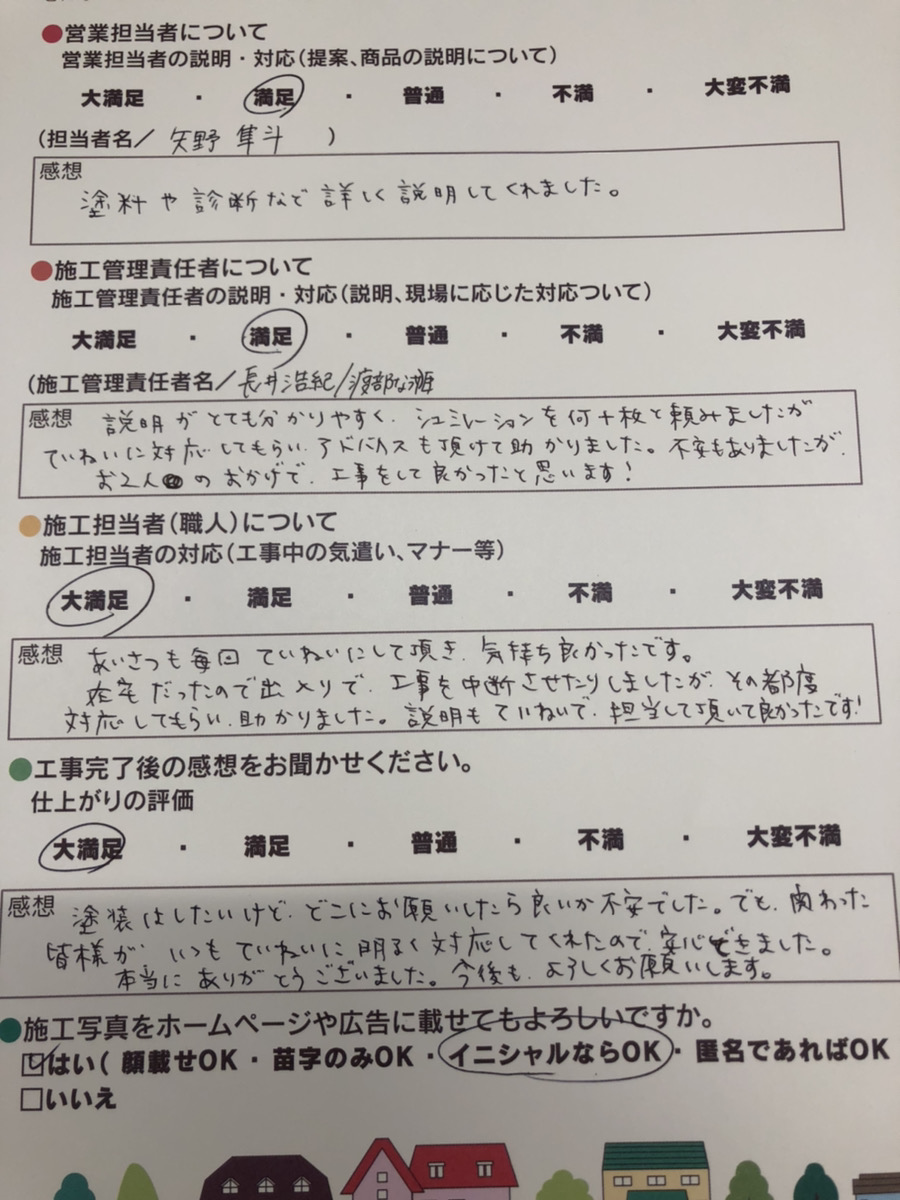 ●営業担当者について
営業担当者の説明・対応（提案、商品の説明について）
大満足 ・ 満足 ・ 普通 ・ 不満 ・ 大変不満
（担当者名／ 矢野 隼斗 ）
感想
塗料や診断など詳しく説明してくれました。
●施工管理責任者について
施工管理責任者の説明・対応（説明、現場に応じた対応ついて）
大満足 ・ 満足 ・ 普通 ・ 不満 ・ 大変不満
（施工管理責任者名／長井浩紀/渡部
感想 説明がとても分かりやすく、シュミレーションを何十枚と頼みましたが
ていねいに対応してもらい、アドバイスも頂けて助かりました。不安もありましたが、
お2人のおかげで、工事をして良かったと思います！
●施工担当者（職人）について
施工担当者の対応（工事中の気遣い、マナー等）
大満足 ・ 満足 ・ 普通 ・ 不満 ・ 大変不満
感想 あいさつも毎回ていねいにして頂き、気持ち良かったです。
在宅だったので出入りで、工事を中断させたりしましたが、その都度
対応してもらい、助かりました。説明もていねいで、担当して頂いて良かったです！
●工事完了後の感想をお聞かせください。
仕上がりの評価
大満足 ・ 満足 ・ 普通 ・ 不満 ・ 大変不満
感想 塗装はしたいけど、どこにお願いしたら良いか不安でした。でも、関わった
皆様が、いつもていねいに明るく対応してくれたので、安心できました。
本当にありがとうございました。今後も、よろしくお願いします。
●施工写真をホームページや広告に載せてもよろしいですか。
☑はい（ 顔載せOK ・ 苗字のみOK ・ イニシャルならOK ・ 匿名であればOK
□いいえ